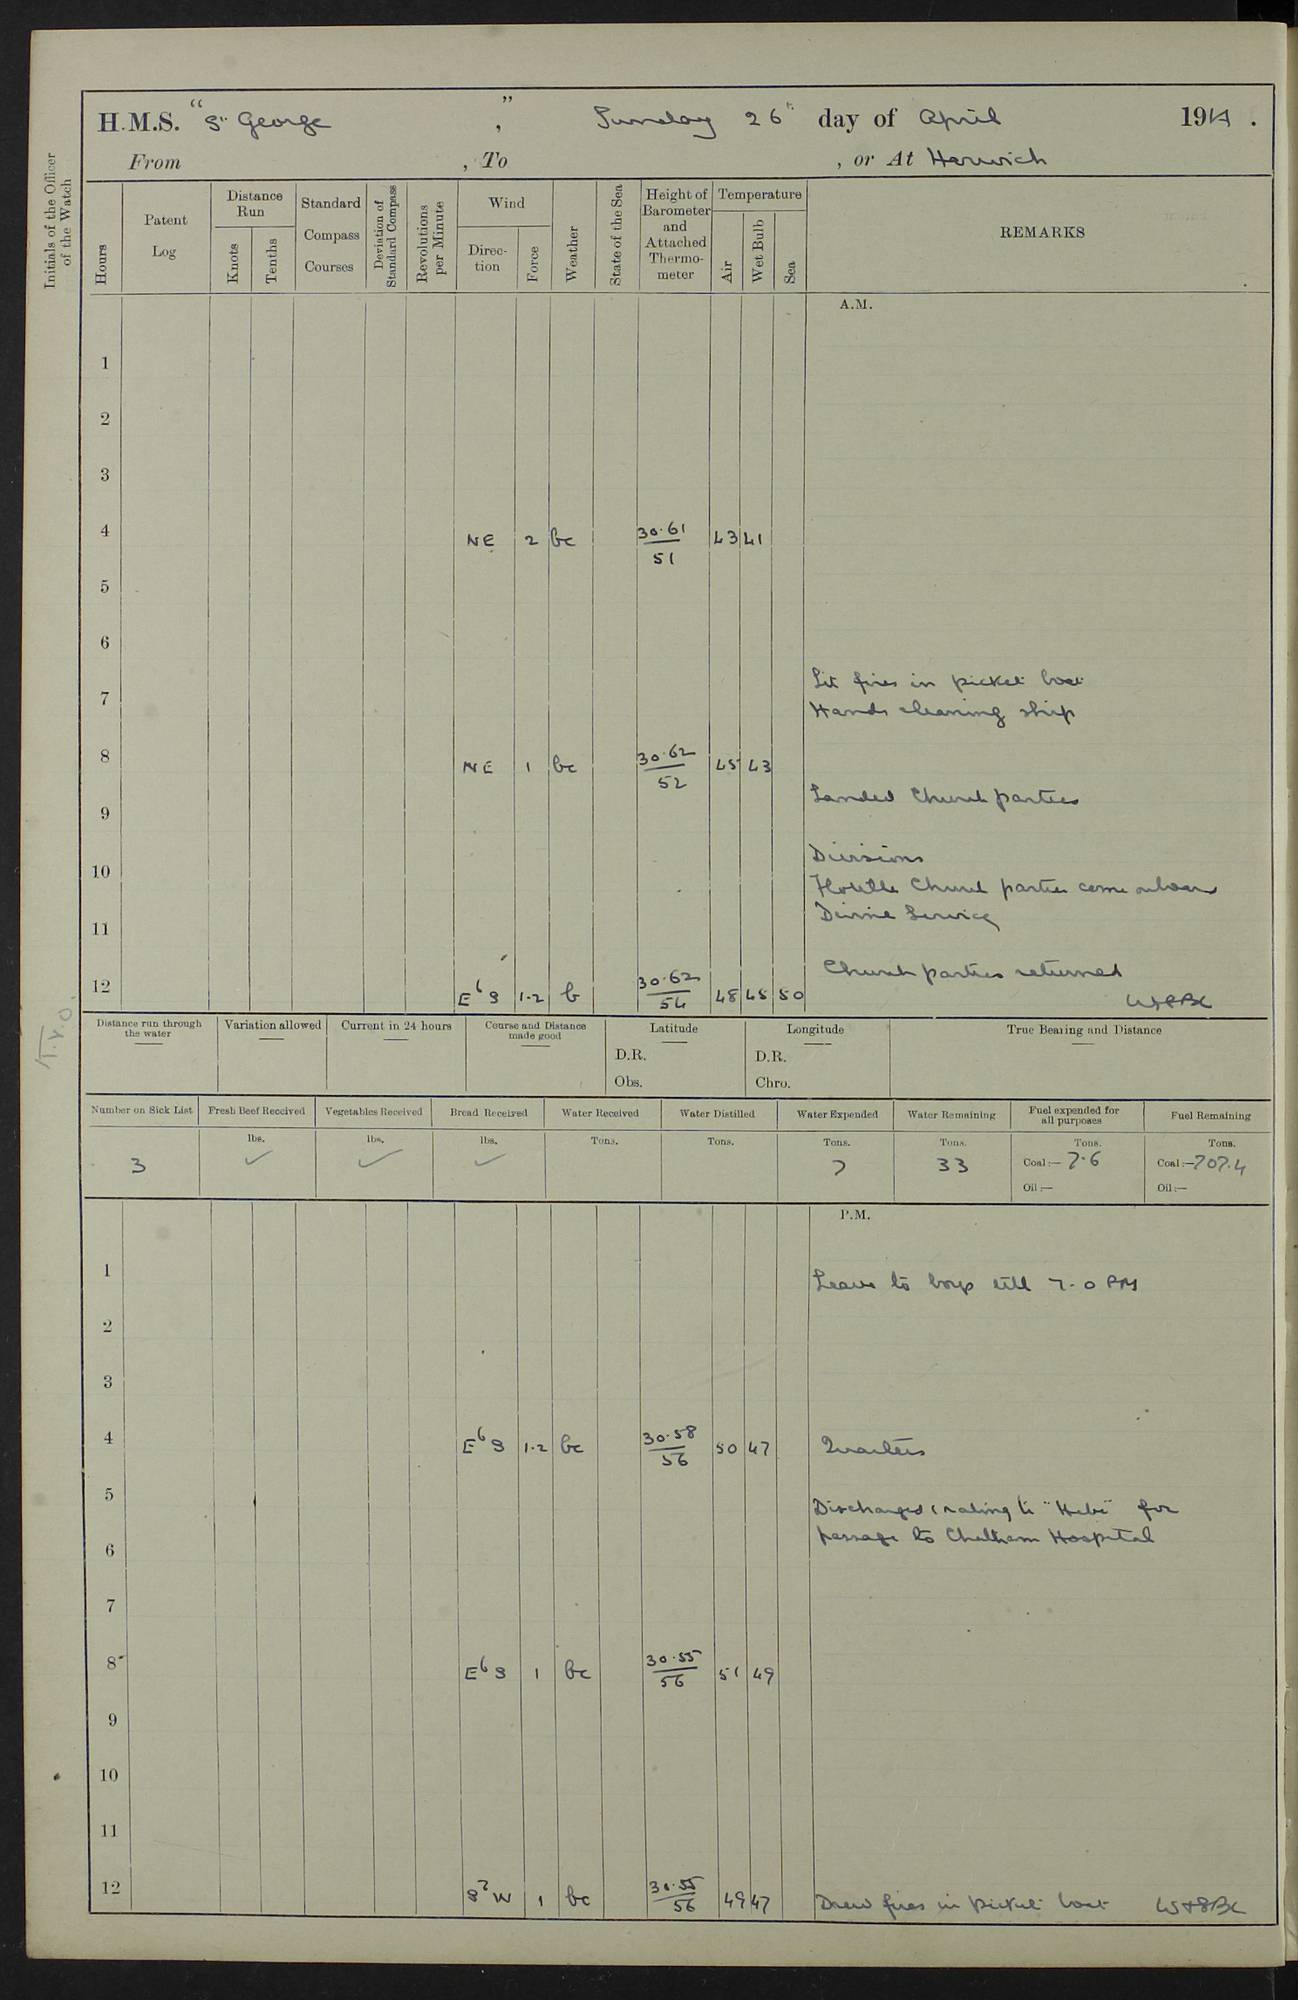 H.M.S. "St George", Sunday 26th day of April 1914.
From , To , or At Harwich
Initials of the Officer of the Watch
Hours
Patent Log
Distance Run
Knots Tenths
Standard Compass Courses
Deviation of Standard Compass
Revolutions per Minute
Wind
Direction Force
Weather
State of the Sea
Height of Barometer and Attached Thermometer
Temperature
Air Wet Bulb Sea
REMARKS
A.M.
1
2
3
4 NE 2 bc 30.61 51 43 41
5
6
Lit fires in picket boat
7
Hands cleaning ship
8 NE 1 bc 30.62 52 45 43
Landed Church parties
9
Divisions
10
Flotilla Church parties come onboard
Divine Service
11
Church parties returned
12 E b S 1.2 b 30.62 54 48 45 50
Distance run through the water
Variation allowed
Current in 24 hours
Course and Distance made good
Latitude
D.R.
Obs.
Longitude
D.R.
Chro.
True Bearing and Distance
Number on Sick List Fresh Beef Received Vegetables Received Bread Received Water Received Water Distilled Water Expended Water Remaining Fuel expended for all purposes Fuel Remaining
lbs. lbs. lbs. Tons. Tons. Tons. Tons. Tons. Tons.
3 ✓ ✓ ✓ 7 33 Coal:— 7.6 Coal:— 707.4
Oil:— Oil:—
P.M.
1 Leave to boys till 7.0 PM
2
3
4 E b S 1.2 bc 30.58 56 50 47 Quarters
5 Discharged 1 rating to "Hebe" for
passage to Chatham Hospital
6
7
8 E b S 1 bc 30.55 56 51 49
9
10
11
12 W 1 bc 30.55 56 49 47 Drew fires in picket boat